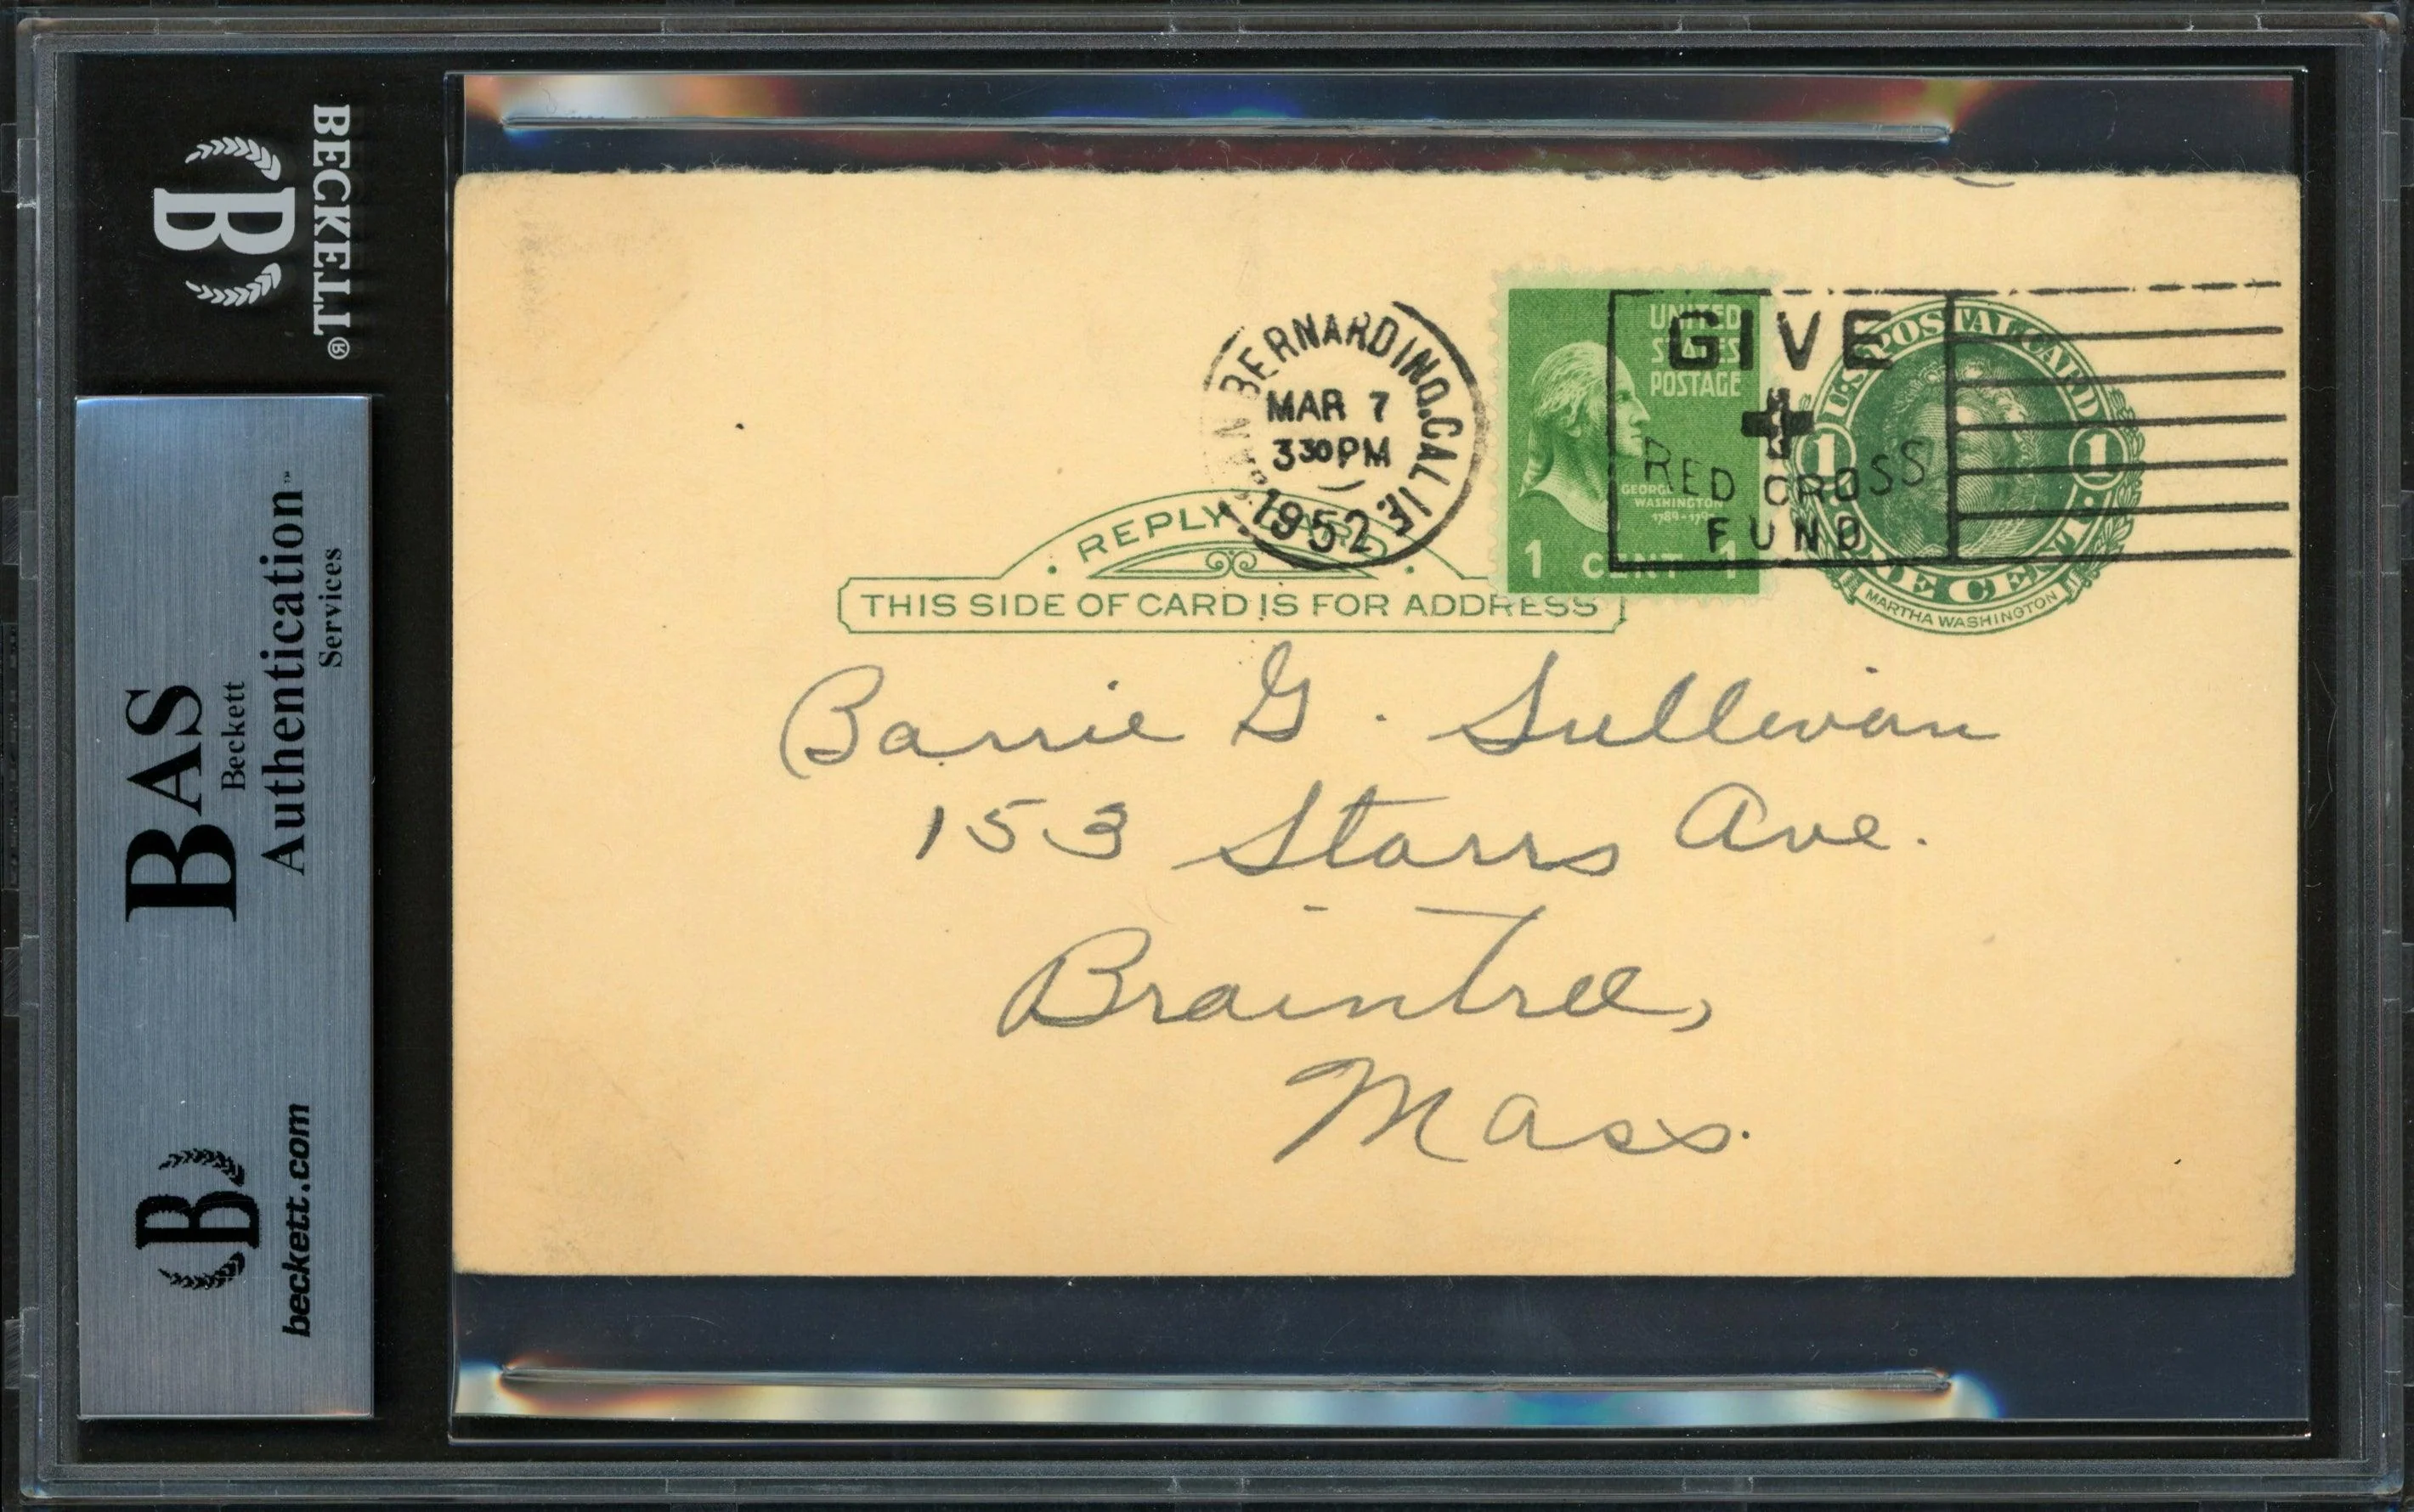 BECKETT®
B
BAS
Beckett
Authentication™
Services
B
beckett.com
SAN BERNARDINO, CALIF.
MAR 7
3 30 PM
1952
UNITED
STATES
POSTAGE
GEORGE
WASHINGTON
1 CENT 1
GIVE
RED CROSS
FUND
U.S. POSTAL CARD
1 1
ONE CENT
MARTHA WASHINGTON
REPLY CARD
THIS SIDE OF CARD IS FOR ADDRESS
Barrie G. Sullivan
153 Starrs Ave.
Braintree,
Mass.